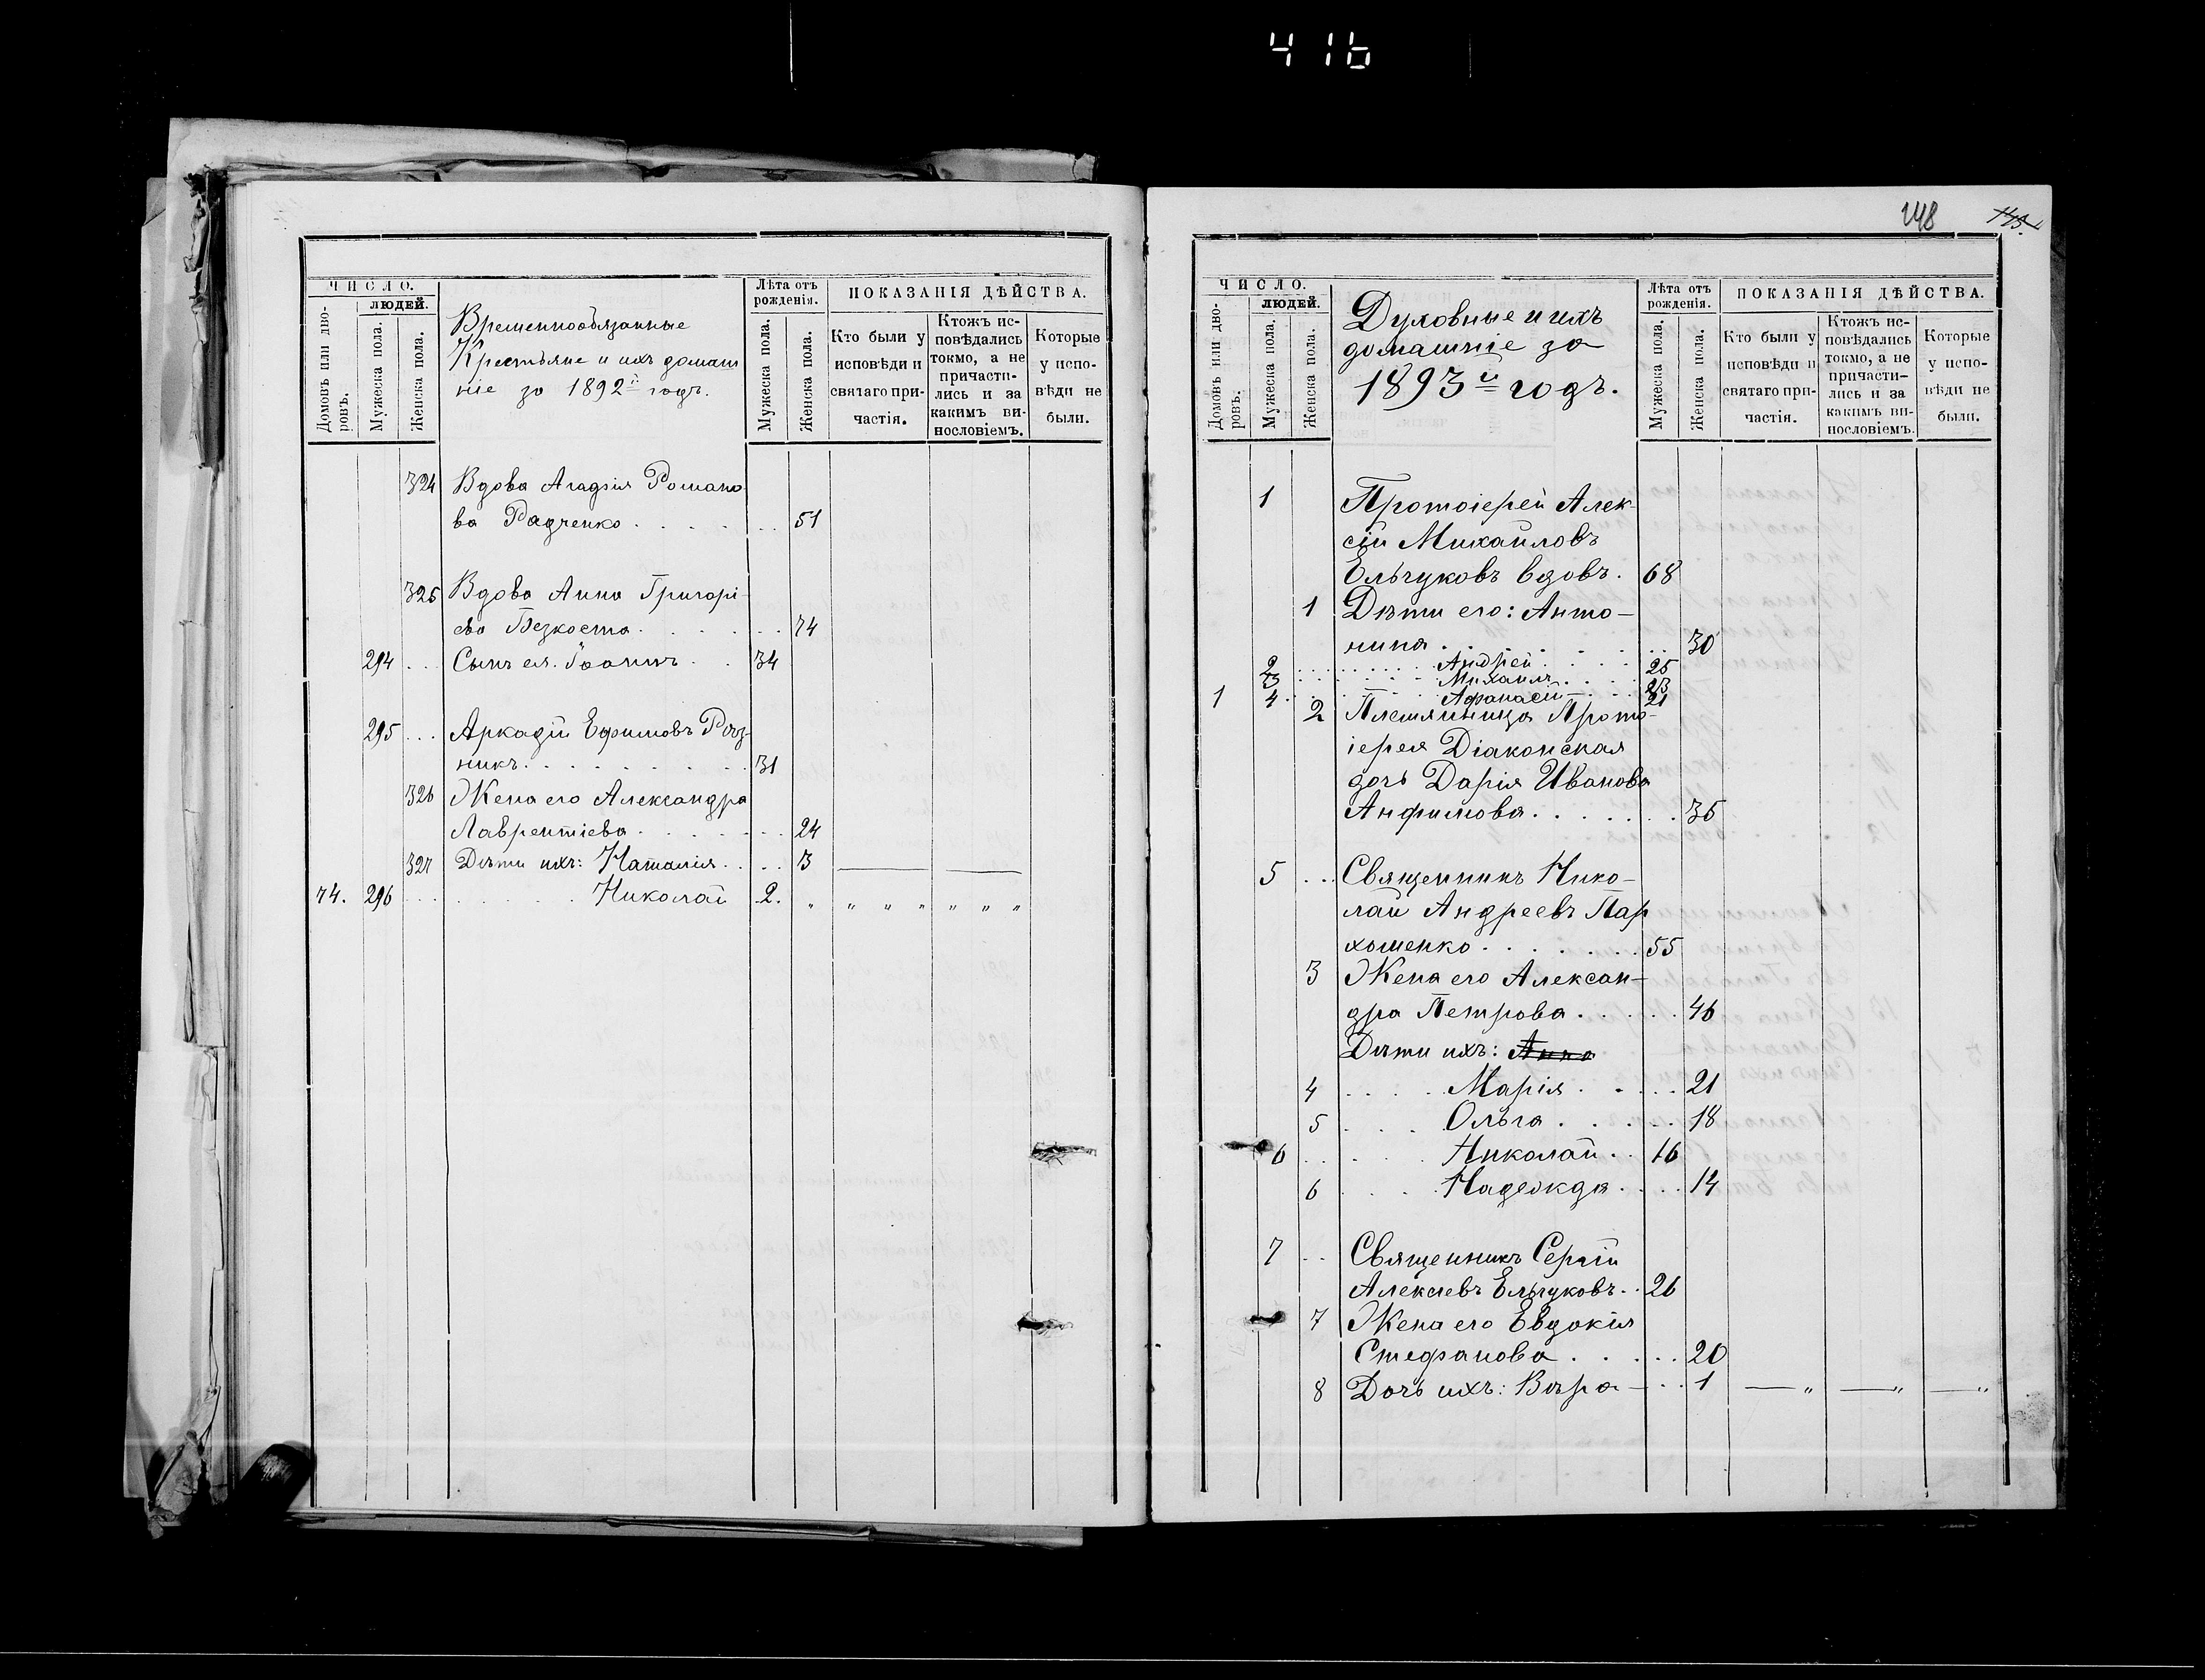 416
ЧИСЛО.
людей.
Домовъ или дво-
ровъ.
Мужеска пола.
Женска пола.
Временнообязанные
Крестьяне и ихъ домаш
ніе за 1892й годъ.
Лѣта отъ
рожденія.
Мужеска пола.
Женска пола.
ПОКАЗАНІЯ ДѢЙСТВА.
Кто были у
исповѣди и
святаго при-
частія.
Ктожъ ис-
повѣдались
токмо, а не
причасти-
лись и за
какимъ ви-
нословіемъ.
Которые
у испо-
вѣди не
были.
324 Вдова Агафія Романо
ва Радченко . . . . . 51
325 Вдова Анна Григорі-
ева Безкоста . . . . . 74
294 . . . Сынъ ея. Іоаннъ . . 34
295 . . . Аркадій Ефимовъ Рѣз-
никъ . . . . . . . . 31
326 Жена его Александра
Лаврентіева . . . . . . 24
327 Дѣти ихъ: Наталія . . . . 3
74. 296 . . . . . . . Николай 2. „ „ „ „ „ „ „
148 143.
ЧИСЛО.
людей.
Домовъ или дво-
ровъ.
Мужеска пола.
Женска пола.
Духовные и ихъ
домашніе за
1893й годъ.
Лѣта отъ
рожденія.
Мужеска пола.
Женска пола.
ПОКАЗАНІЯ ДѢЙСТВА.
Кто были у
исповѣди и
святаго при-
частія.
Ктожъ ис-
повѣдались
токмо, а не
причасти-
лись и за
какимъ ви-
нословіемъ.
Которые
у испо-
вѣди не
были.
1 Протоіерей Алек-
сій Михайловъ
Ельчуковъ вдовъ. 68
1 Дѣти его: Анто-
нина . . . . . . . 30
2 . . . . . . Андрей . . . . 25
3 . . . . . . Михаилъ . . . . 23
1 4 . . . . . . Афанасій . . . 21
2 Племянница Прото-
іерея Діаконская
дочь Дарія Иванова
Анфимова . . . . . . 35
5 . . . Священникъ Нико-
лай Андреевъ Пар
хоменко . . . . . . 55
3 Жена его Алексан-
дра Петрова . . . . . 46
Дѣти ихъ: Анна
4 . . . . Марія . . . . . 21
5 . . . Ольга . . . . . 18
6 . . . . . Николай . . 16
6 . . . . Надежда . . . . 14
7 . . Священникъ Сергій
Алексѣевъ Ельчуковъ . . 26
7 Жена его Евдокія
Стефанова . . . . . 20
8 Дочь ихъ: Вѣра — . . 1 — „ — „ — „